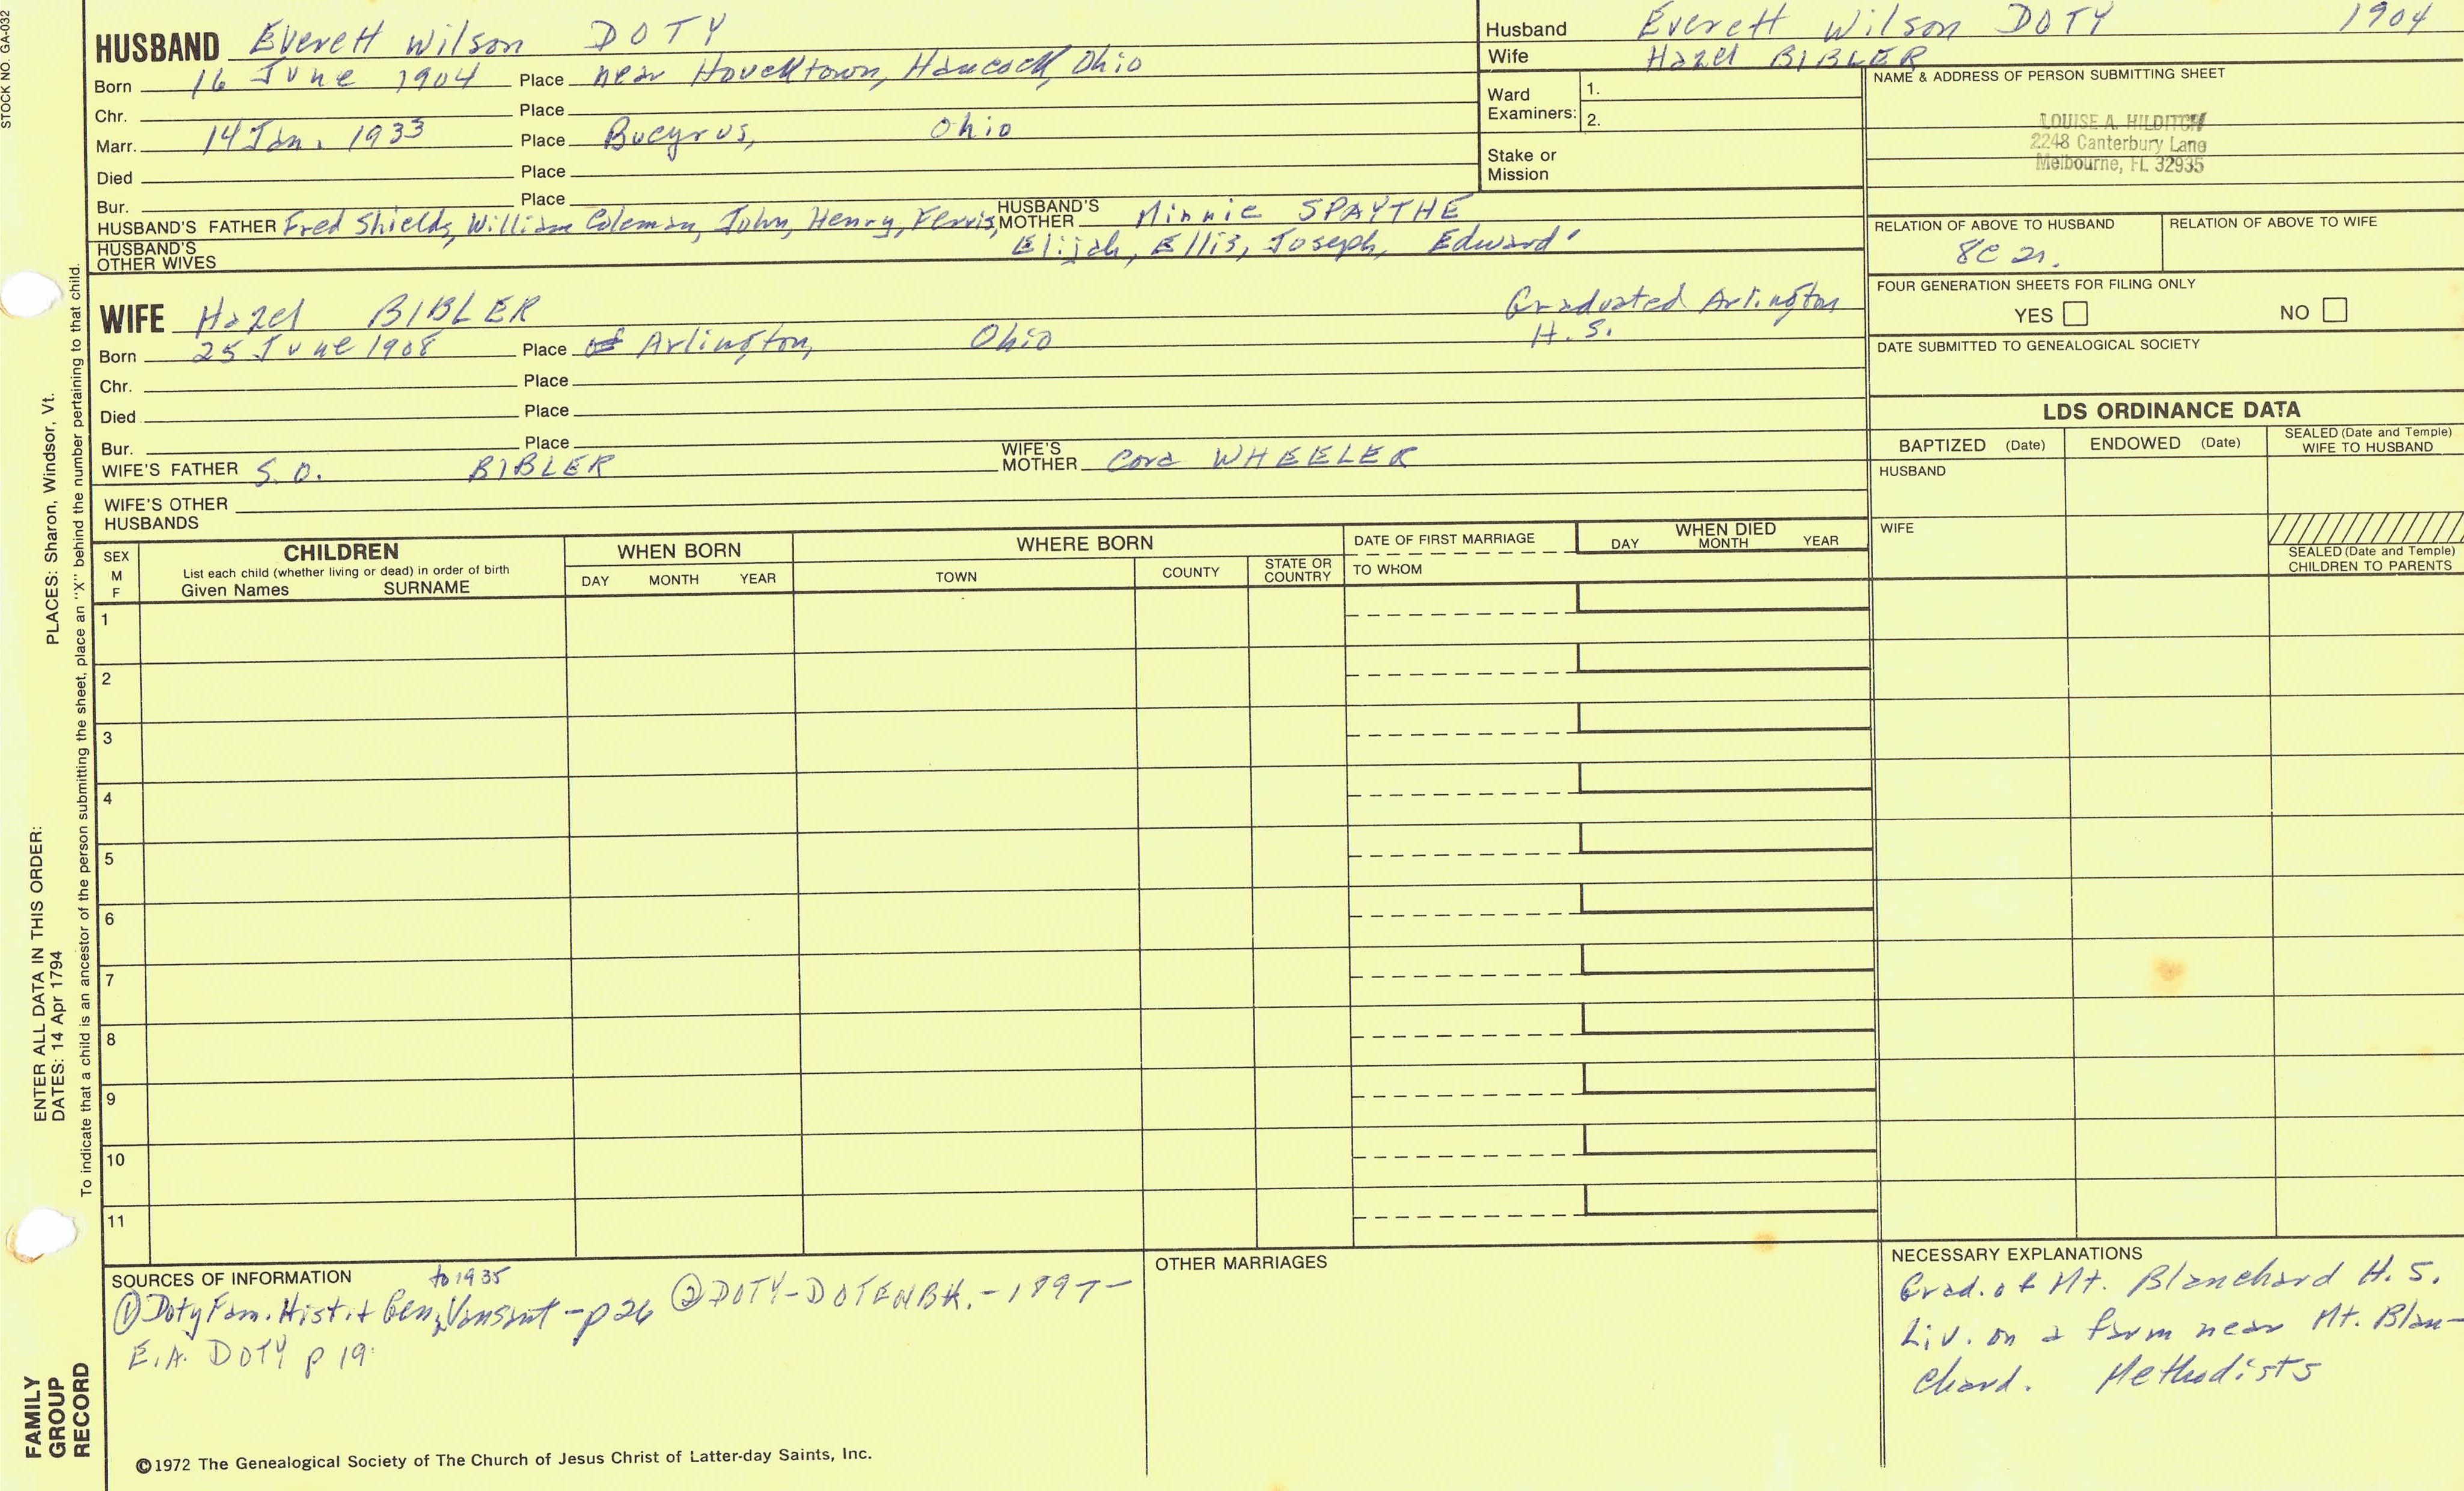 STOCK NO. GA-032
HUSBAND Everett Wilson DOTY
Born 16 June 1904 Place near Houcktown, Hancock, Ohio
Chr. Place
Marr. 14 Jan. 1933 Place Bucyrus, Ohio
Died Place
Bur. Place
HUSBAND'S FATHER Fred Shields, William Coleman, John, Henry, Ferris, HUSBAND'S MOTHER Minnie SPAYTHE
Elijah, Ellis, Joseph, Edward'
HUSBAND'S OTHER WIVES
Husband Everett Wilson DOTY 1904
Wife Hazel BIBLER
Ward Examiners: 1.
2.
Stake or Mission
NAME & ADDRESS OF PERSON SUBMITTING SHEET
LOUISE A. HILDITCH
2248 Canterbury Lane
Melbourne, FL 32935
RELATION OF ABOVE TO HUSBAND RELATION OF ABOVE TO WIFE
8C 2r.
FOUR GENERATION SHEETS FOR FILING ONLY
YES NO
DATE SUBMITTED TO GENEALOGICAL SOCIETY
WIFE Hazel BIBLER Graduated Arlington
H. S.
Born 25 June 1908 Place of Arlington, Ohio
Chr. Place
Died Place
Bur. Place
WIFE'S FATHER S. O. BIBLER WIFE'S MOTHER Cora WHEELER
WIFE'S OTHER HUSBANDS
LDS ORDINANCE DATA
BAPTIZED (Date) ENDOWED (Date) SEALED (Date and Temple) WIFE TO HUSBAND
HUSBAND
WIFE
SEALED (Date and Temple) CHILDREN TO PARENTS
SEX M F
CHILDREN
List each child (whether living or dead) in order of birth
Given Names SURNAME
WHEN BORN
DAY MONTH YEAR
WHERE BORN
TOWN COUNTY STATE OR COUNTRY
DATE OF FIRST MARRIAGE
TO WHOM
WHEN DIED
DAY MONTH YEAR
1
2
3
4
5
6
7
8
9
10
11
SOURCES OF INFORMATION to 1935
① Doty Fam. Hist. & Gen, Vansant - p 26 ② DOTY-DOTEN BK. - 1897 -
E. A. DOTY p 19.
OTHER MARRIAGES
NECESSARY EXPLANATIONS
Grad. of Mt. Blanchard H. S.
Liv. on a farm near Mt. Blan-
chard. Methodists
©1972 The Genealogical Society of The Church of Jesus Christ of Latter-day Saints, Inc.
FAMILY GROUP RECORD
ENTER ALL DATA IN THIS ORDER:
DATES: 14 Apr 1794 PLACES: Sharon, Windsor, Vt.
To indicate that a child is an ancestor of the person submitting the sheet, place an "X" behind the number pertaining to that child.